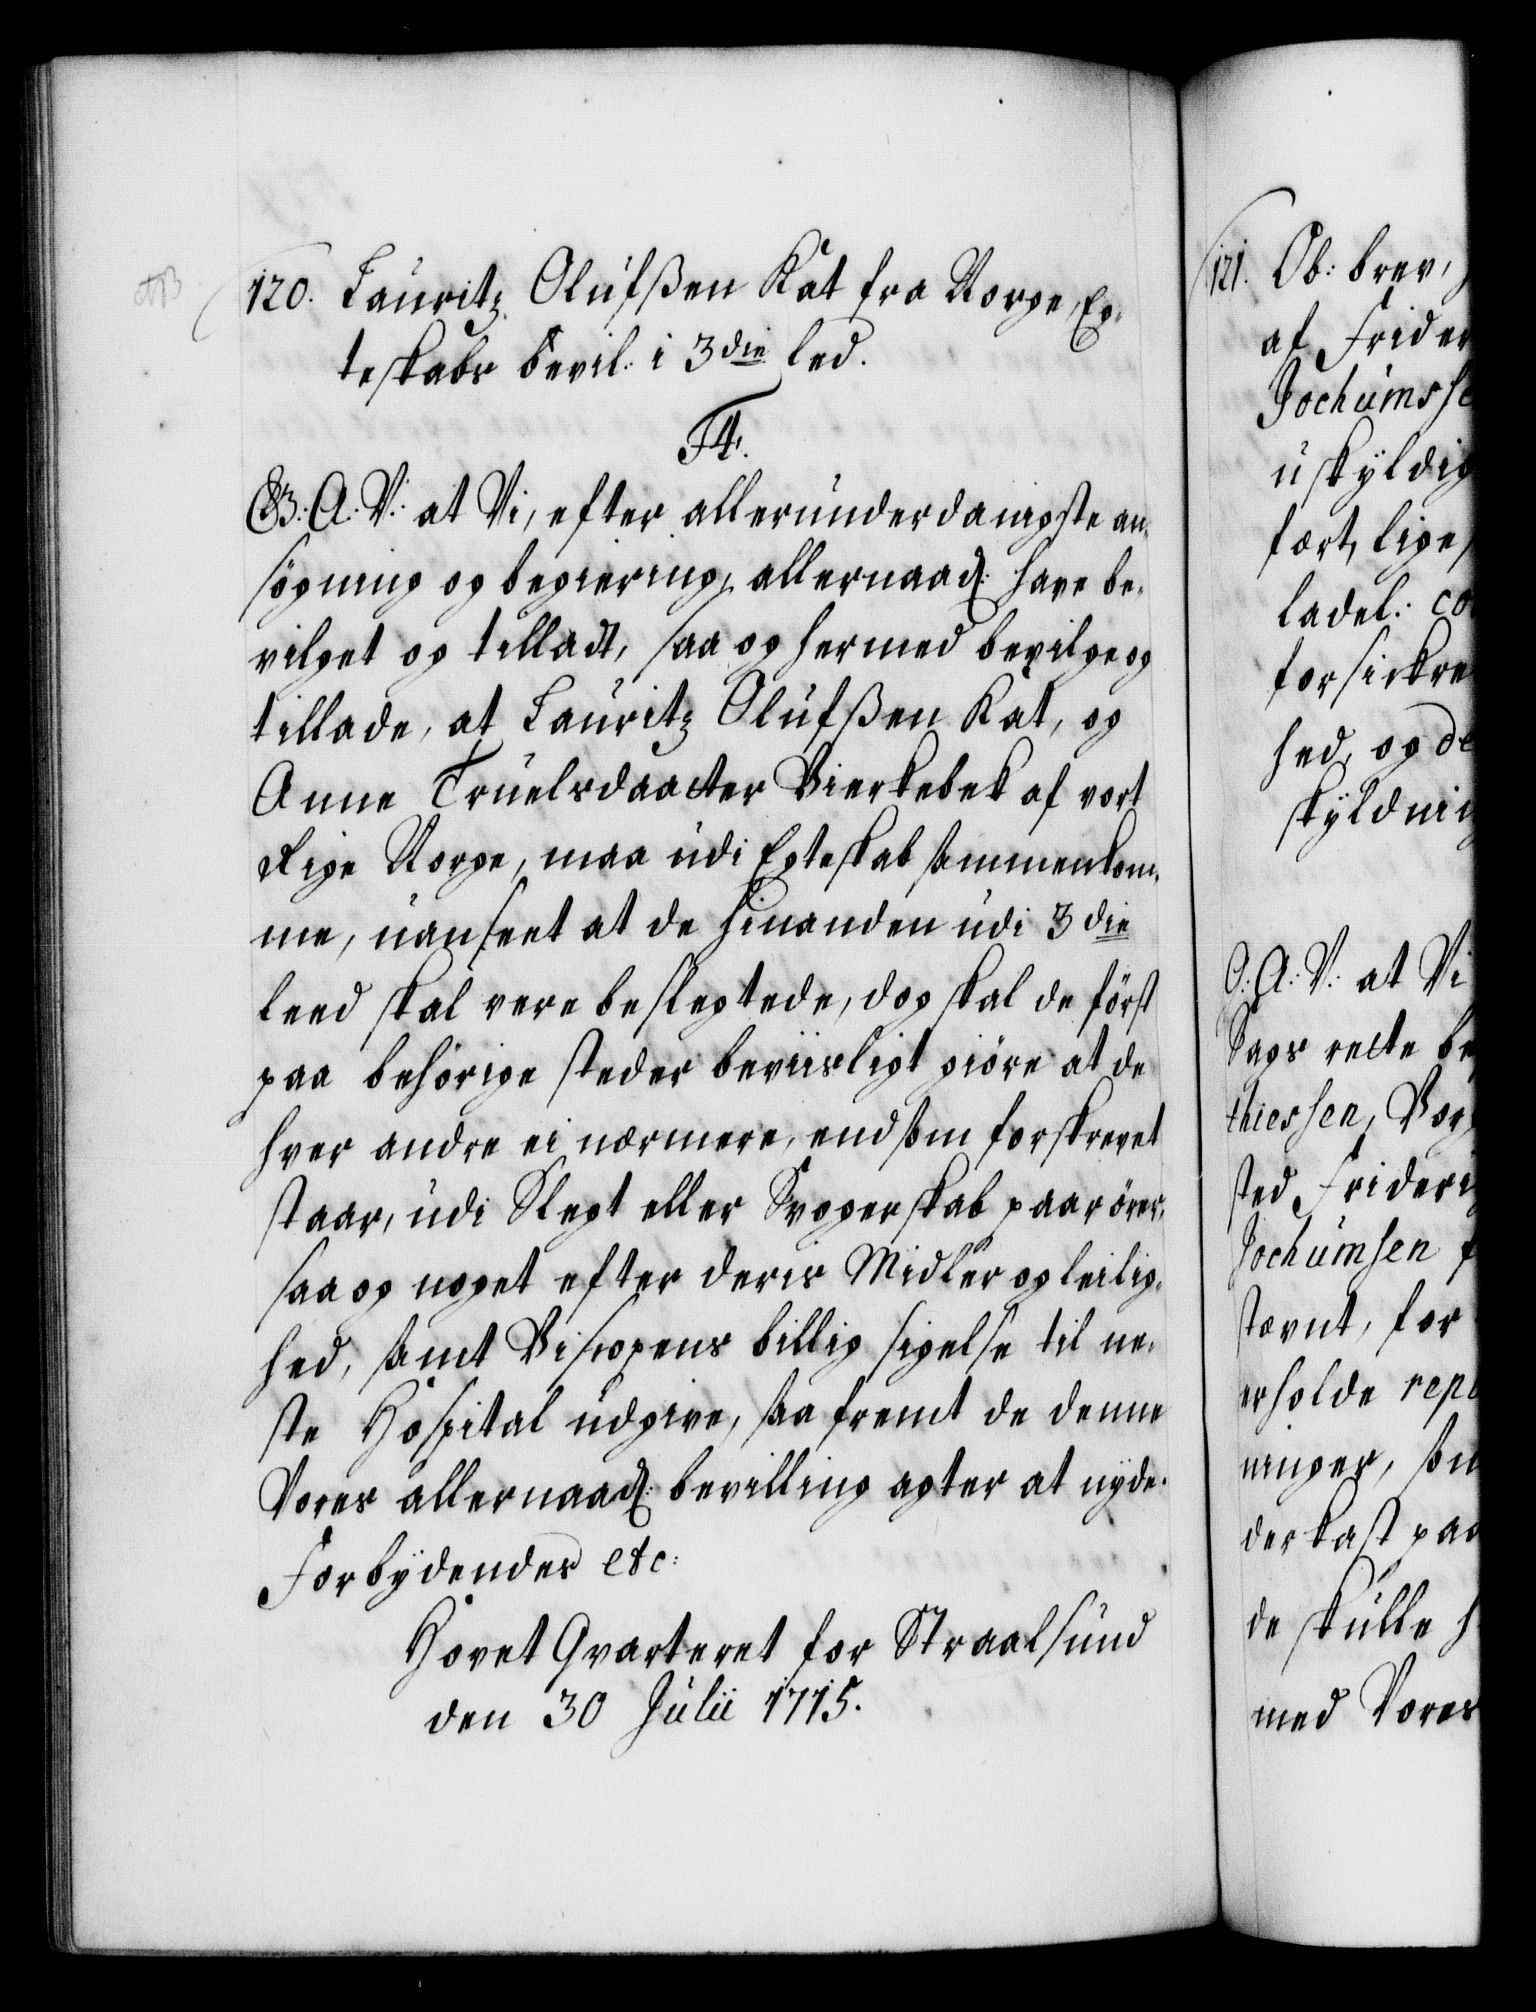 120. Lauritz Olufßen Kat fra Norge, Eg-
teskabs bevil: i 3die led.
F4.
G: A: V: at Vi, efter allerunderdanigste an-
søgning og begiering, allernaad: have be-
vilget og tilladt, saa og hermed bevilge og
tillade, at Lauritz Olufßen Kat, og
Anne Truelsdaatter Vierkebek af vort
Rige Norge, maa udi Egteskab sammenkom-
me, uanseet at de hinanden udi 3die
leed skal vere beslegtede, dog skal de först
paa behörige steder beviisligt giöre at de
hver andre ei nærmere, end som forskrevet
staar, udi Slegt eller Svogerskab paarörer,
saa og noget efter deris Midler og leilig-
hed, samt Biscopens billig sigelse til ne-
ste Hospital udgive, saafremt de denne
Vores allernaad: bevilling agter at nyde.
Forbydendes etc:
Hovet Qvarteret for Straalsund
den 30 Julii 1715.
121. Ob: brev,
af Frider
Jochumsse
uskyldig
fört, lige
ladel: co
forsickre
hed, og de
skyldni
G: A: V: at Vi
Sags rette be
thiessen, Borg
sted Frideri
Jochumsen f
stævnt, for
erholde repa
ninger, som
derkast paa
de skulle h
med Vores